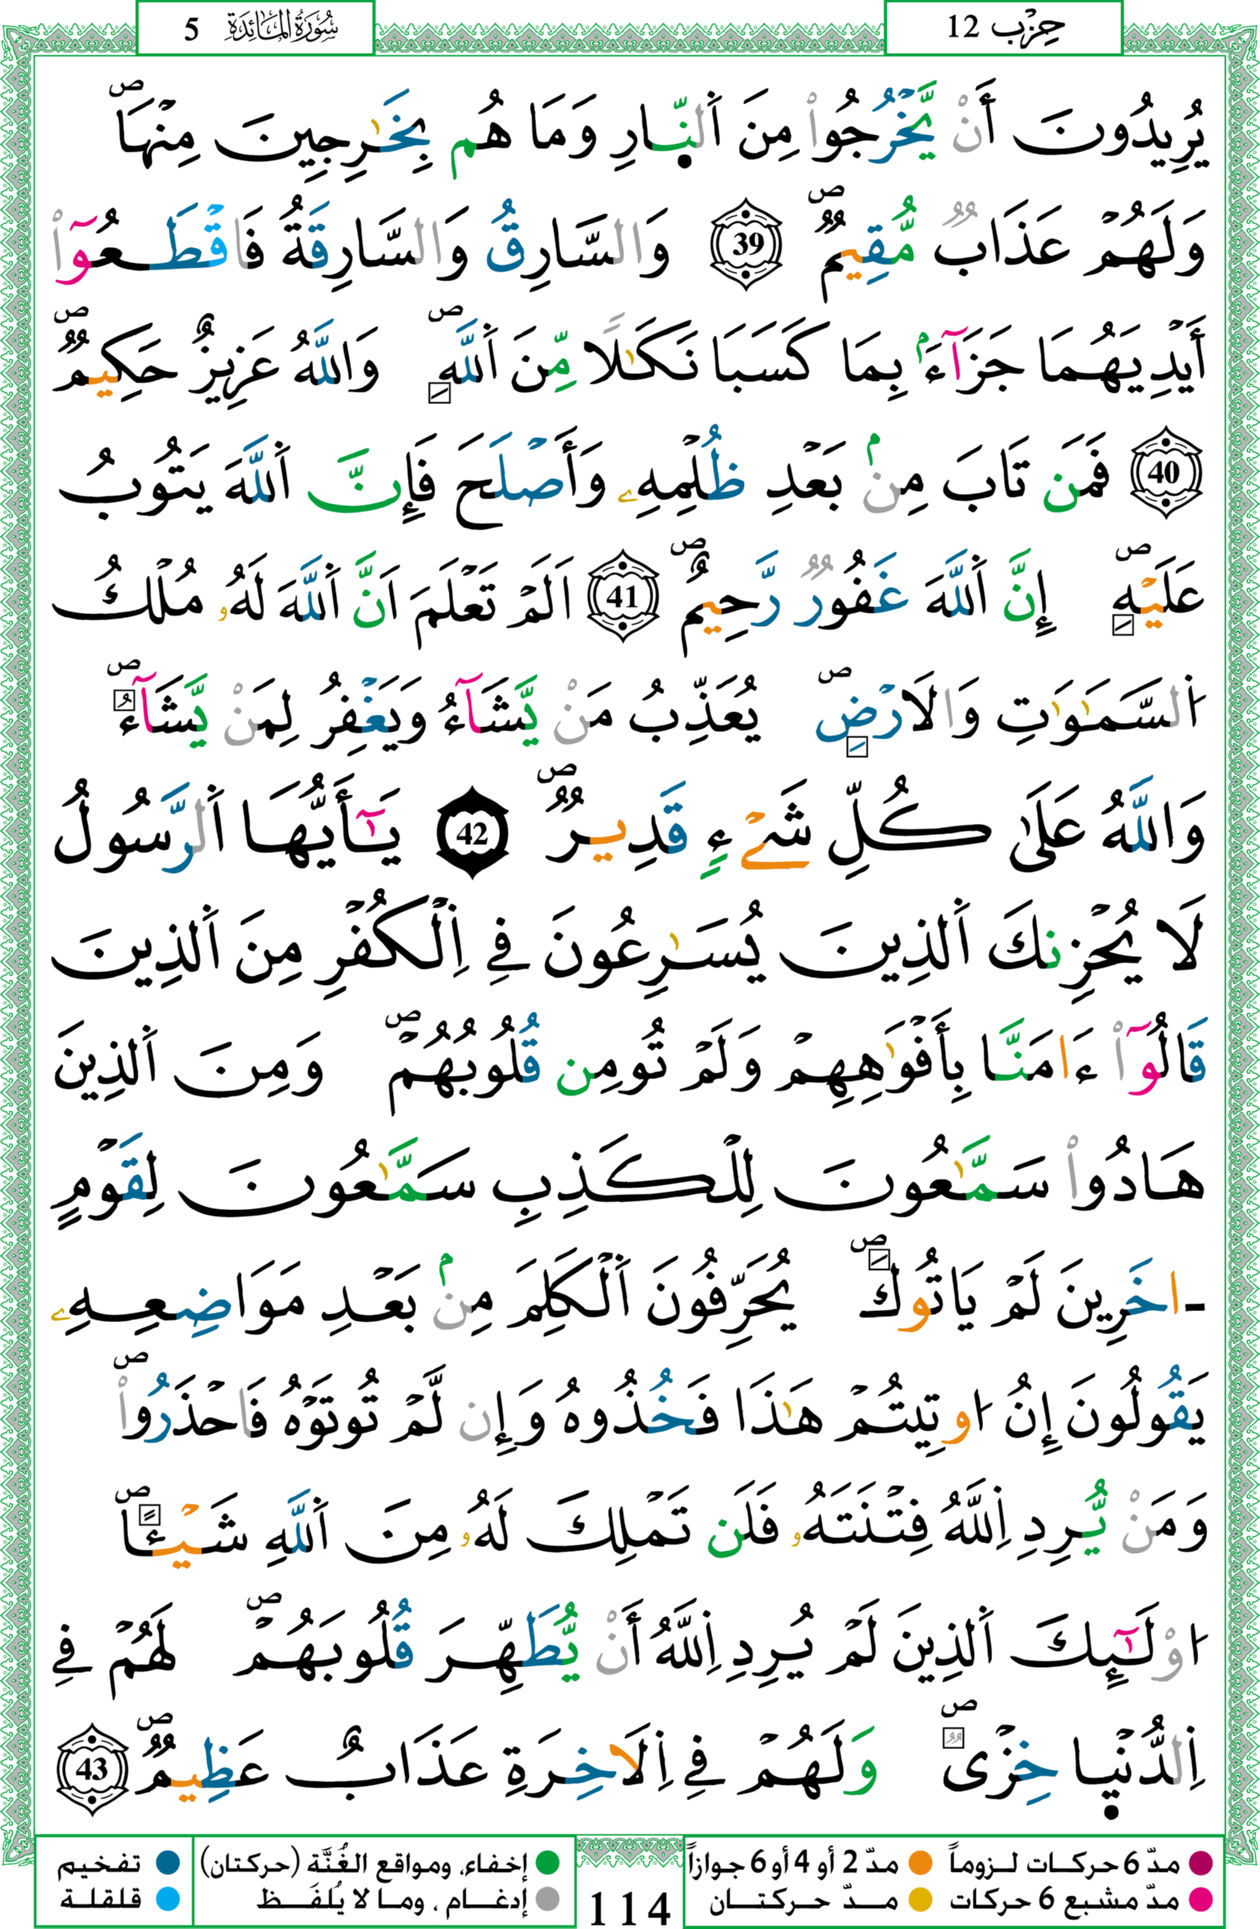 حِزْب 12
سُورَةُ المَائِدَةِ 5
يُرِيدُونَ أَنْ يَّخْرُجُواْ مِنَ اَ۬لنّ۪ارِ وَمَا هُم بِخَٰرِجِينَ مِنْهَاۖ
وَلَهُمْ عَذَابٞ مُّقِيمٞۖ 39 وَالسَّارِقُ وَالسَّارِقَةُ فَاقْطَعُوٓاْ
أَيْدِيَهُمَا جَزَآءَۢ بِمَا كَسَبَا نَكَٰلاٗ مِّنَ اَ۬للَّهِۖ وَاللَّهُ عَزِيزٌ حَكِيمٞۖ
40 فَمَن تَابَ مِنۢ بَعْدِ ظُلْمِهِۦ وَأَصْلَحَ فَإِنَّ اَ۬للَّهَ يَتُوبُ
عَلَيْهِۖ إِنَّ اَ۬للَّهَ غَفُورٞ رَّحِيمٌۖ 41 اَلَمْ تَعْلَمَ اَنَّ اَ۬للَّهَ لَهُۥ مُلْكُ
اُ۬لسَّمَٰوَٰتِ وَالَارْضِۖ يُعَذِّبُ مَنْ يَّشَآءُ وَيَغْفِرُ لِمَنْ يَّشَآءُۖ
وَاللَّهُ عَلَىٰ كُلِّ شَےْءٖ قَدِيرٞۖ 42 يَٰٓأَيُّهَا اَ۬لرَّسُولُ
لَا يُحْزِنكَ اَ۬لذِينَ يُسَٰرِعُونَ فِے اِ۬لْكُفْرِ مِنَ اَ۬لذِينَ
قَالُوٓاْ ءَامَنَّا بِأَفْوَٰهِهِمْ وَلَمْ تُومِن قُلُوبُهُمْۖ وَمِنَ اَ۬لذِينَ
هَادُواْ سَمَّٰعُونَ لِلْكَذِبِ سَمَّٰعُونَ لِقَوْمٍ
ـاخَرِينَ لَمْ يَاتُوكَۖ يُحَرِّفُونَ اَ۬لْكَلِمَ مِنۢ بَعْدِ مَوَاضِعِهِۦ
يَقُولُونَ إِنُ اوتِيتُمْ هَٰذَا فَخُذُوهُ وَإِن لَّمْ تُوتَوْهُ فَاحْذَرُواْۖ
وَمَنْ يُّرِدِ اِ۬للَّهُ فِتْنَتَهُۥ فَلَن تَمْلِكَ لَهُۥ مِنَ اَ۬للَّهِ شَيْـٔاًۖ
اوْلَٰٓئِكَ اَ۬لذِينَ لَمْ يُرِدِ اِ۬للَّهُ أَنْ يُّطَهِّرَ قُلُوبَهُمْۖ لَهُمْ فِے
اِ۬لدُّنْي۪ا خِزْيٞۖ وَلَهُمْ فِے اِ۬لَاخِرَةِ عَذَابٌ عَظِيمٞۖ 43
مدّ 6 حركات لـزوماً مدّ 2 أو 4 أو 6 جوازاً إخفاء، ومواقع الغُنَّة (حركتان) تفخيم
مدّ مشبع 6 حركات مـدّ حـركتـان إدغـام ، ومـا لا يُلفَـظ قلقلة
114